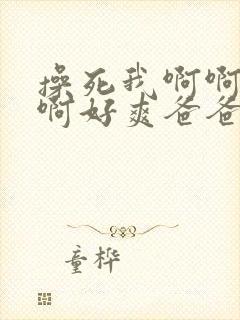 操死我啊啊
啊好爽爸爸
童桦